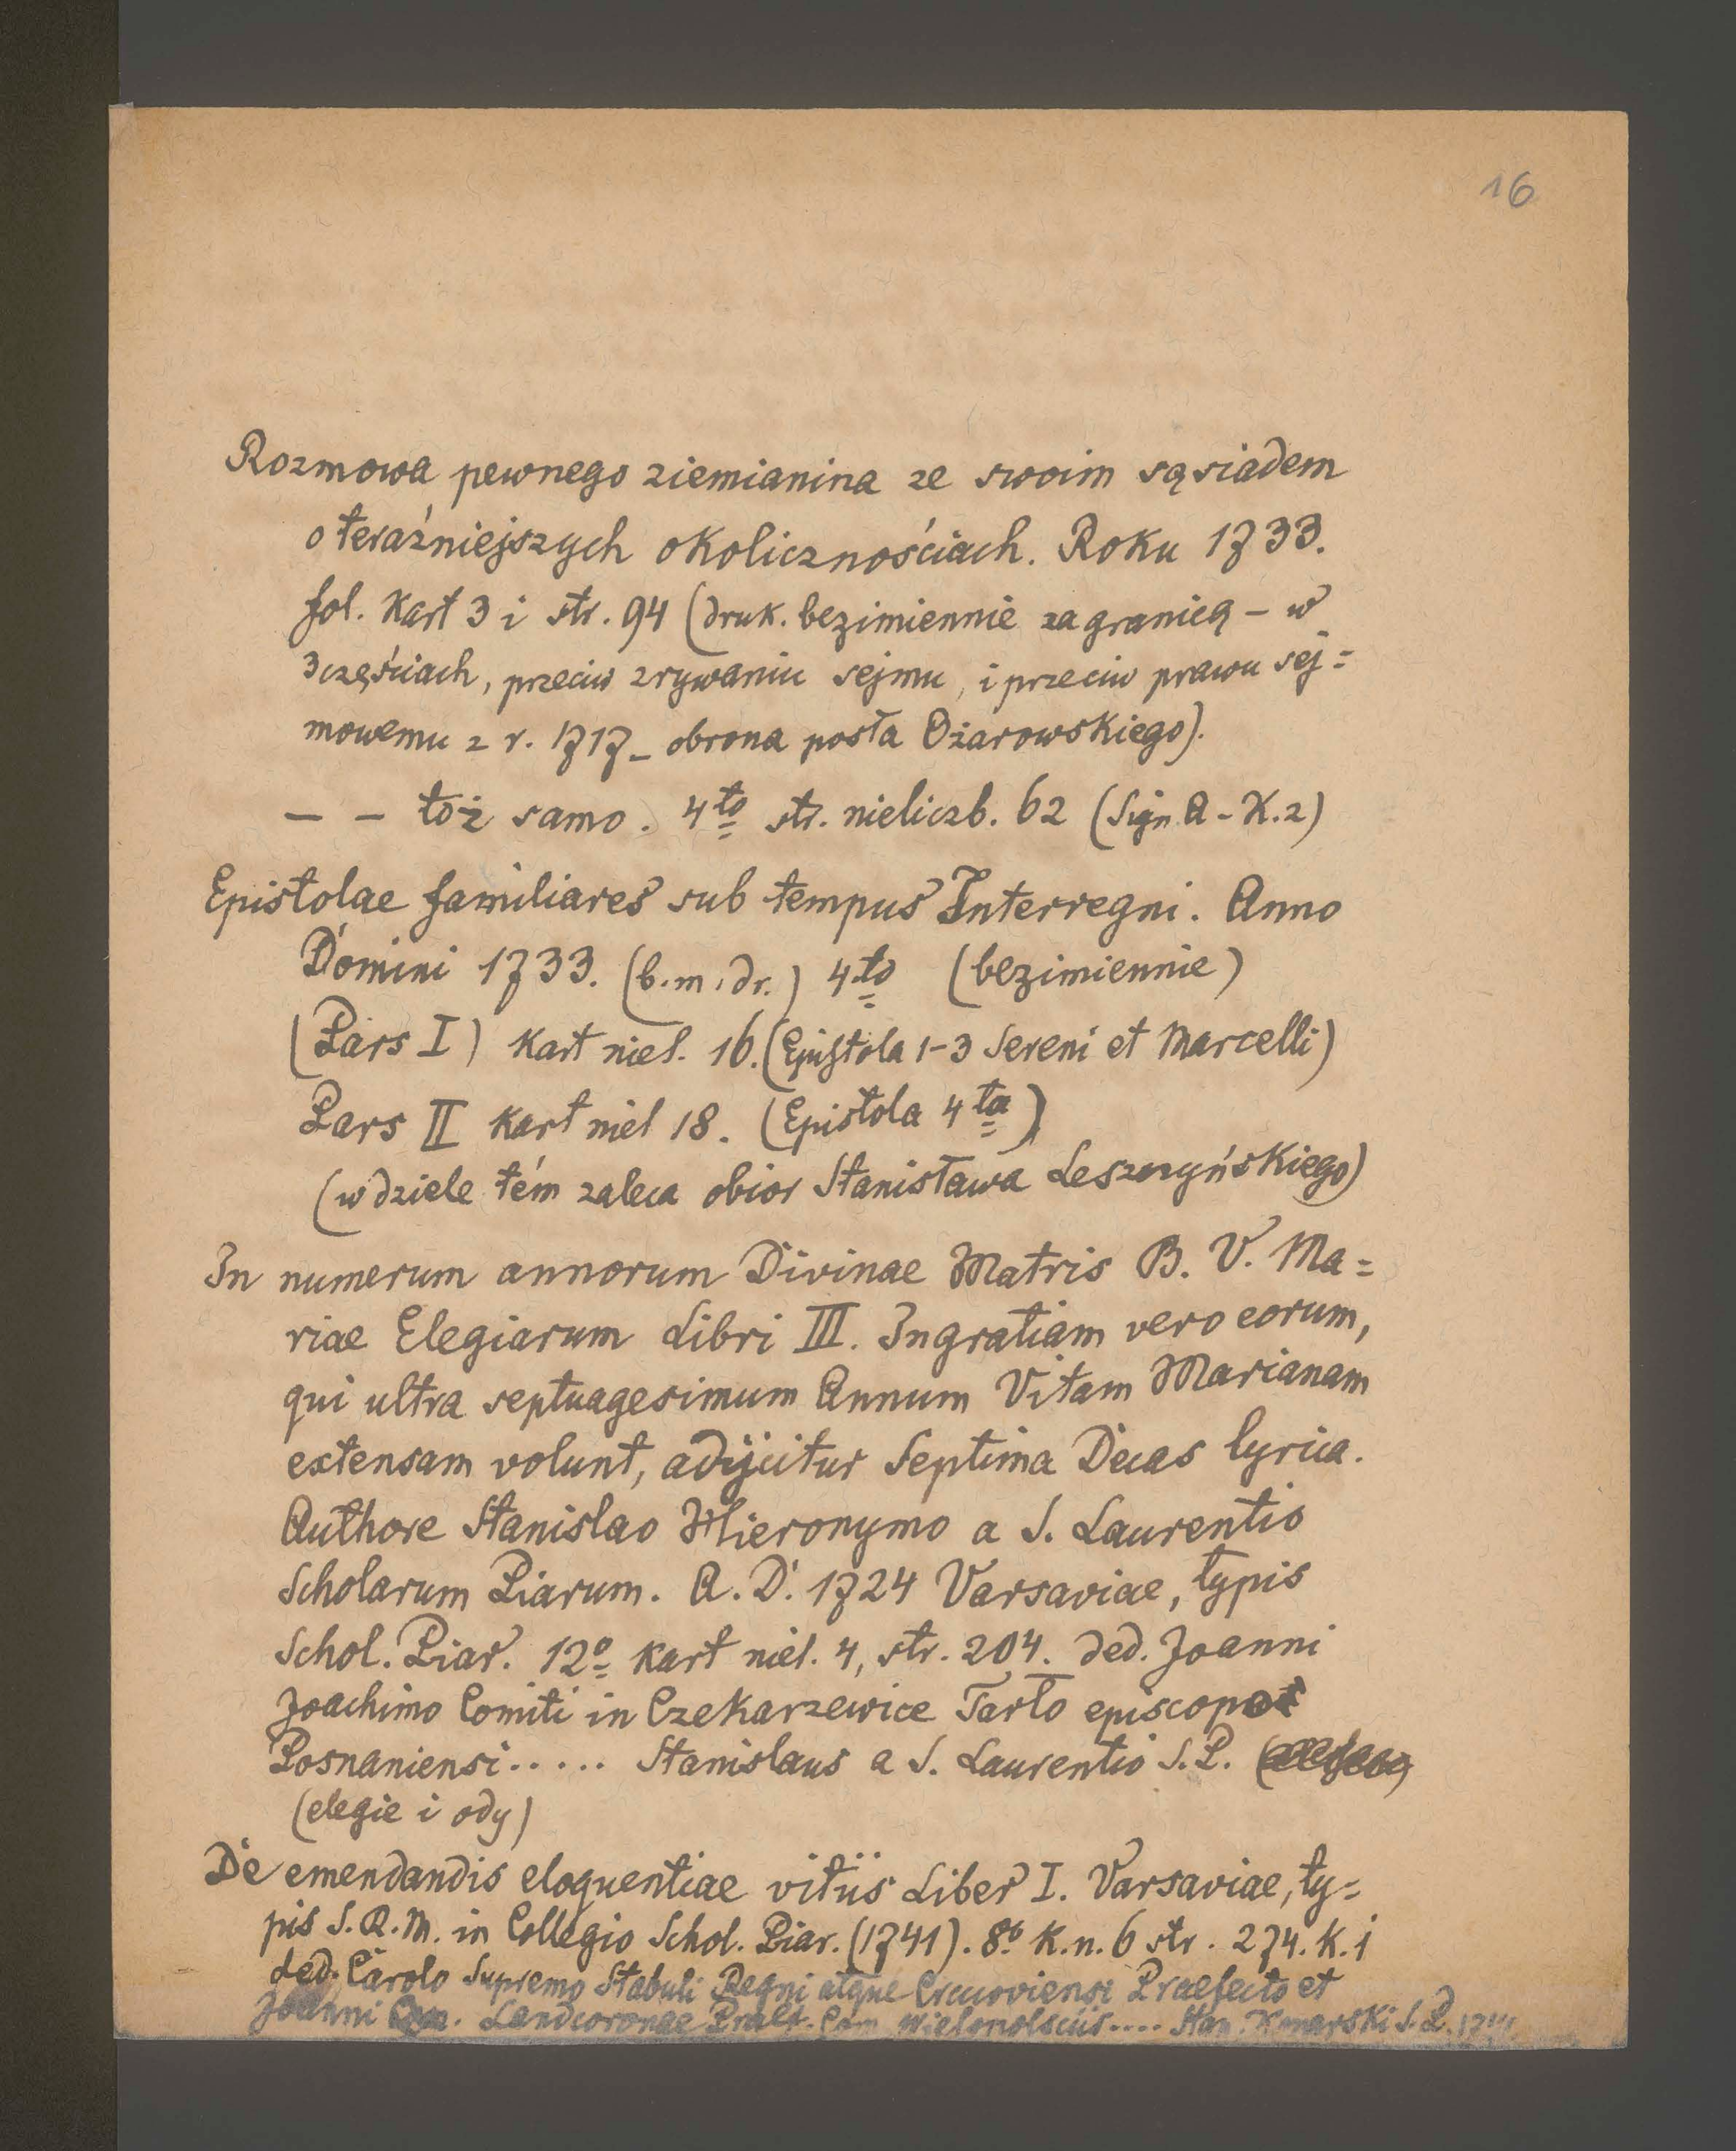 16
Rozmowa pewnego ziemianina ze swoim sąsiadem
o teraźniejszych okolicznościach. Roku 1733.
fol. Kart 3 i str. 94 (druk. bezimiennie za granicą – w
3 częściach, przeciw zrywaniu sejmu, i przeciw prawu sej=
mowemu z r. 1717 – obrona posła Ożarowskiego).
– – toż samo. 4to str. nieliczb. 62 (Sign A – K.2)
Epistolae familiares sub tempus Interregni. Anno
Domini 1733. (b.m.dr.) 4to (bezimiennie)
(Pars I) Kart niel. 16. (Epistola 1–3 Sereni et Marcelli)
Pars II Kart niel 18. (Epistola 4ta)
(w dziele tém zaleca obior Stanisława Leszczyńskiego)
In numerum annorum Divinae Matris B. V. Ma=
riae Elegiarum Libri III. In gratiam vero eorum,
qui ultra septuagesimum Annum Vitam Marianam
extensam volunt, adijcitur Septima Decas lyrica.
Authore Stanislao Hieronymo a S. Laurentio
Scholarum Piarum. A. D. 1724 Varsaviae, typis
Schol. Piar. 12o kart niel. 4, str. 204. ded. Joanni
Joachimo Comiti in Czekarzewice Tarło episcopo
Posnaniensi..... Stanislaus a S. Laurentio S. P.
(elegie i ody)
De emendandis eloquentiae vitiis Liber I. Varsaviae, ty=
pis S. R. M. in Collegio Schol. Piar. (1741). 8o K. n. 6 str. 274. K. 1
ded. Carolo Supremo Stabuli Regni atque Cracoviensi Praefecto et
Joanni Landcoronae Praef. Com Wielopolsciis.... Stan. Konarski S. P. 1741